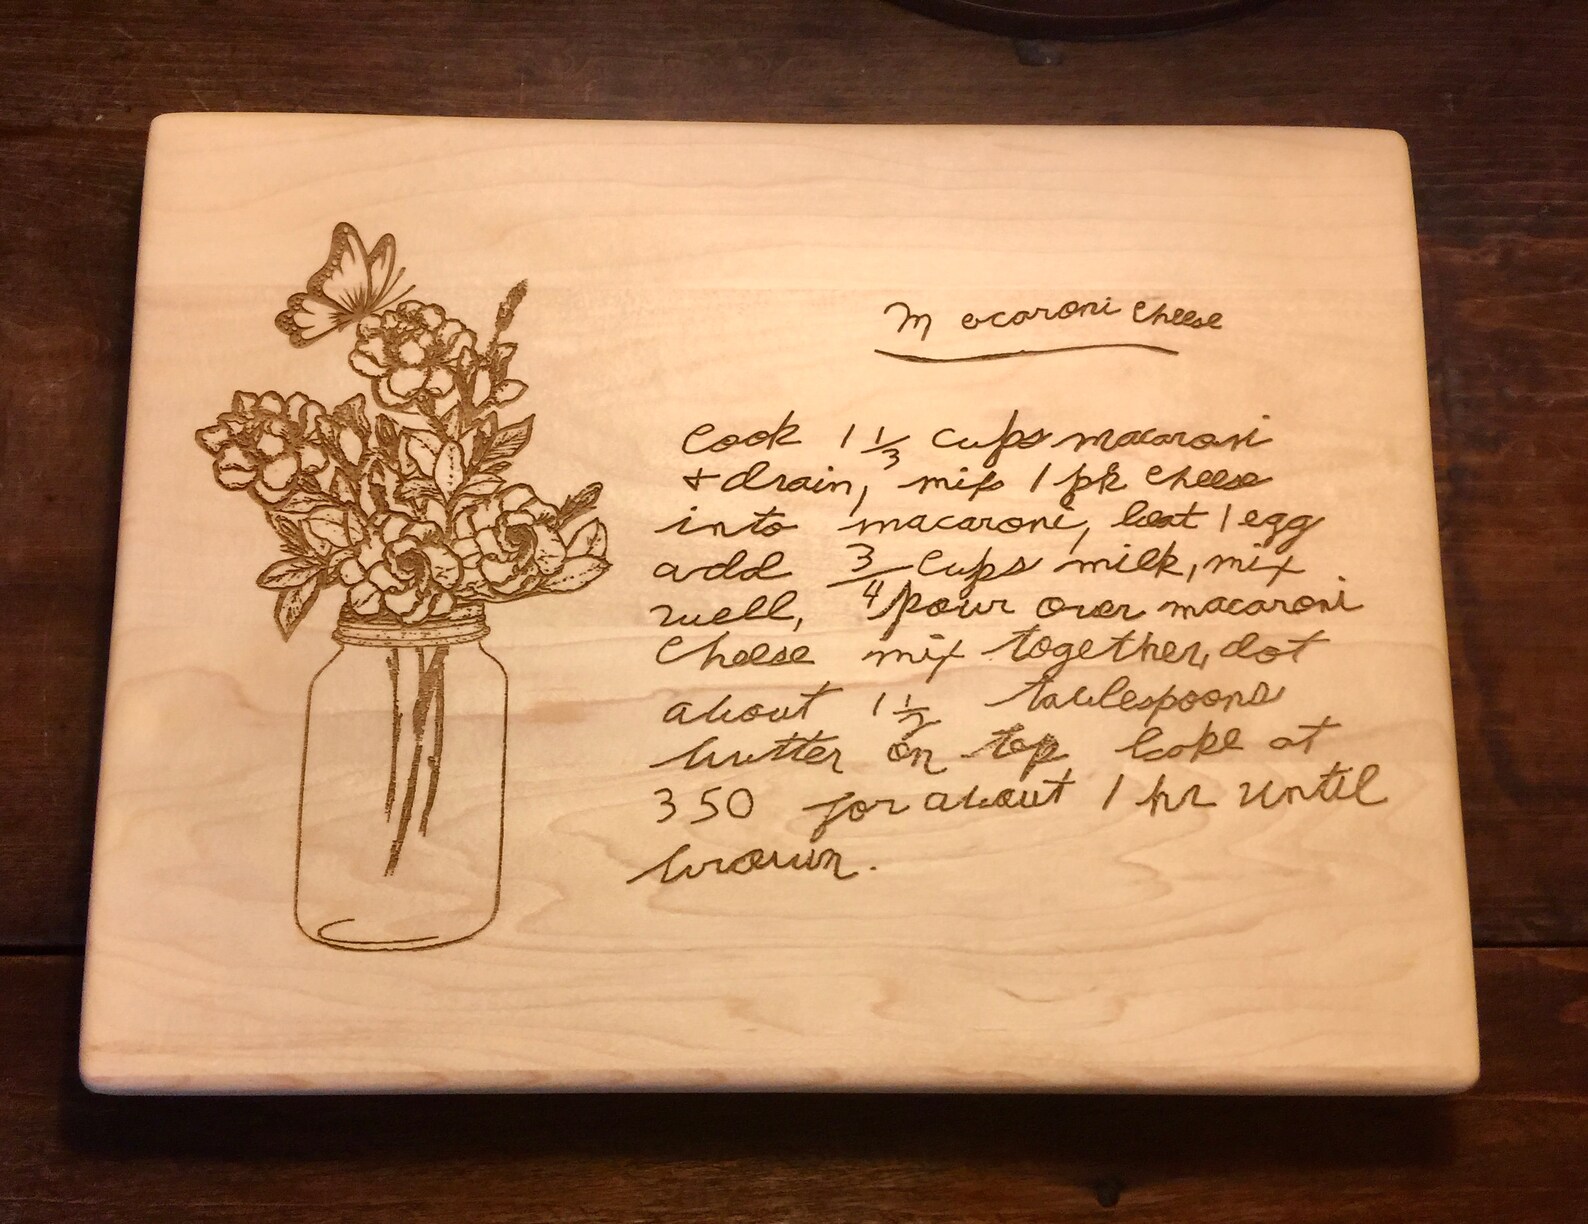 Macaroni Cheese
Cook 1 1/3 cups macaroni
+ drain, mix 1 pk cheese
into macaroni, beat 1 egg
add 3/4 cups milk, mix
well, pour over macaroni
cheese mix together, dot
about 1 1/2 tablespoons
butter on top bake at
350 for about 1 hr until
brown.